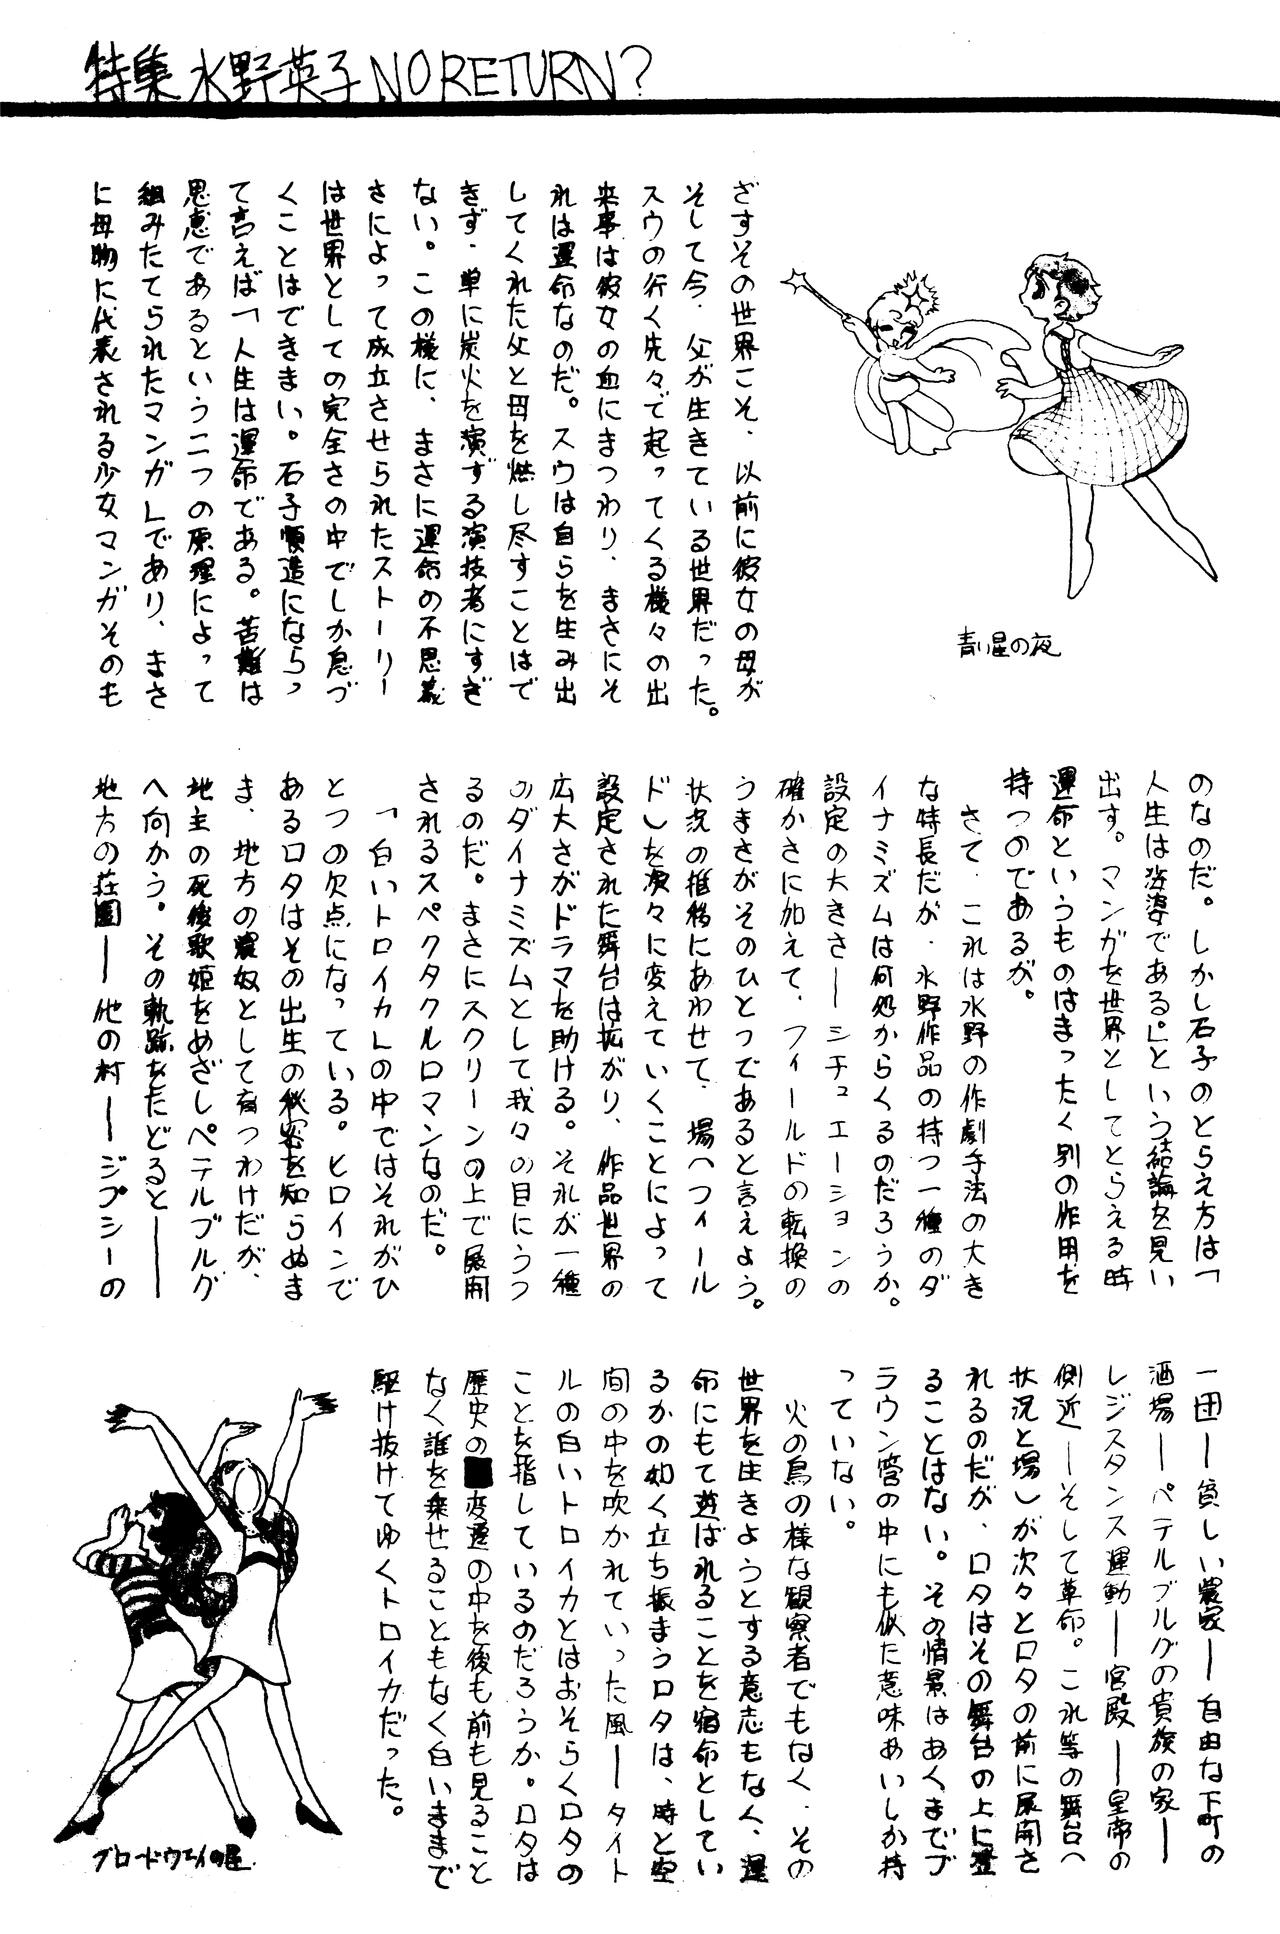 特集 水野英子 NO RETURN?
ざすその世界こそ、以前に彼女の母が
そして今、父が生きている世界だった。
スウの行く先々で起ってくる様々の出
来事は彼女の血にまつわり、まさにそ
れは運命なのだ。スウは自らを生み出
してくれた父と母を燃し尽すことはで
きず、単に炭火を演ずる演技者にすぎ
ない。この様に、まさに運命の不思議
さによって成立させられたストーリー
は世界としての完全さの中でしか息づ
くことはできまい。石子順造にならっ
て言えば「人生は運命である。苦難は
恩恵であるという二つの原理によって
組みたてられたマンガ」であり、まさ
に母物に代表される少女マンガそのも
青い星の夜
のなのだ。しかし石子のとらえ方は「
人生は容姿である」という結論を見い
出す。マンガを世界としてとらえる時
運命というものはまったく別の作用を
持つのであるが。
さて、これは水野の作劇手法の大き
な特長だが、水野作品の持つ一種のダ
イナミズムは何処からくるのだろうか。
設定の大きさ―シチュエーションの
確かさに加えて、フィールドの転換の
うまさがそのひとつであると言えよう。
状況の推移にあわせて、場(フィール
ド)を次々に変えていくことによって
設定された舞台は拡がり、作品世界の
広大さがドラマを助ける。それが一種
のダイナミズムとして我々の目にうつ
るのだ。まさにスクリーンの上で展開
されるスペクタクルロマンなのだ。
「白いトロイカ」の中ではそれがひ
とつの欠点になっている。ヒロインで
あるロタはその出生の秘密を知らぬま
ま、地方の農奴として育つわけだが、
地主の死後歌姫をめざしペテルブルグ
へ向かう。その軌跡をたどると――
地方の荘園―他の村―ジプシーの
一団―貧しい農家―自由な下町の
酒場―ペテルブルグの貴族の家―
レジスタンス運動―宮殿―皇帝の
側近―そして革命。これ等の舞台(
状況と場)が次々とロタの前に展開さ
れるのだが、ロタはその舞台の上に登
ることはない。その情景はあくまでブ
ラウン管の中にも似た意味あいしか持
っていない。
火の鳥の様な観察者でもなく、その
世界を生きようとする意志もなく、運
命にもて遊ばれることを宿命としてい
るかの如く立ち振まうロタは、時と空
間の中を吹かれていった風―タイト
ルの白いトロイカとはおそらくロタの
ことを指しているのだろうか。ロタは
歴史の変遷の中を後も前も見ること
なく誰を乗せることもなく白いままで
駆け抜けてゆくトロイカだった。
ブロードウェイの星